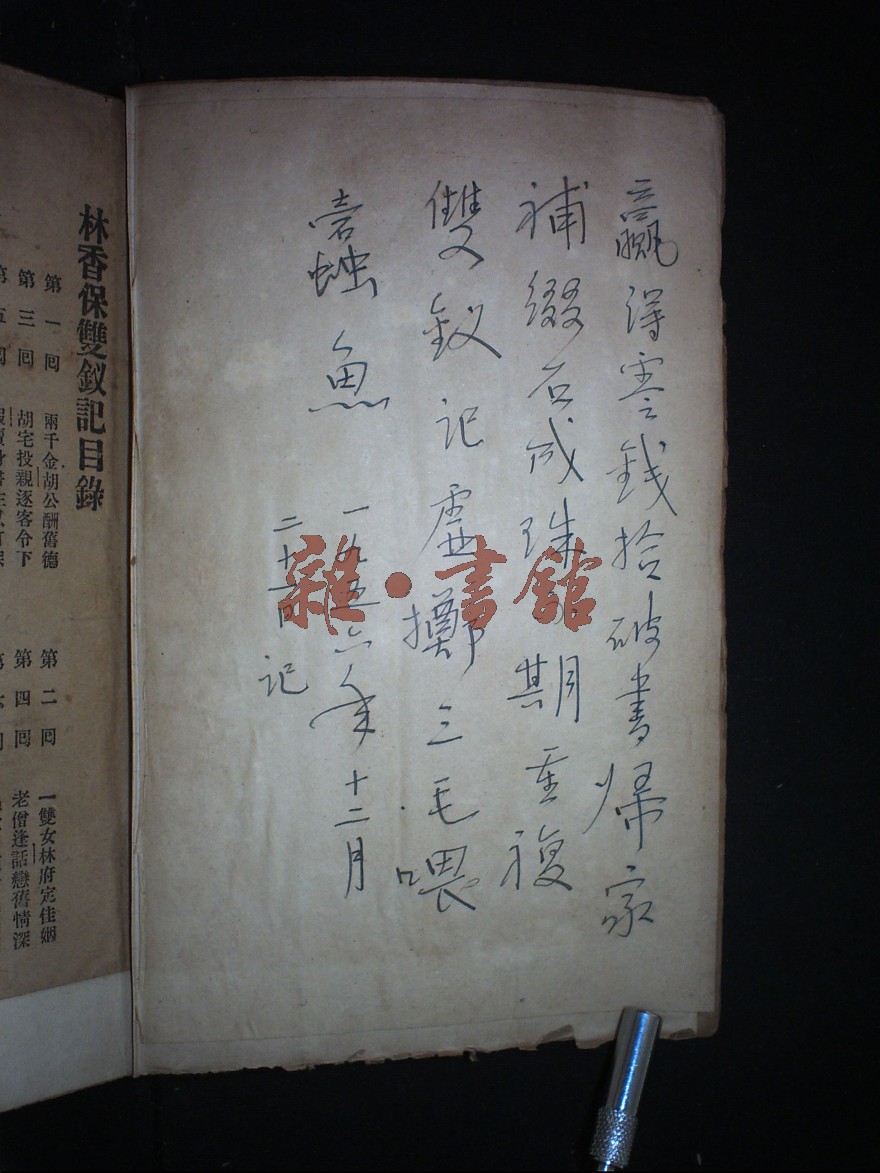 贏得零錢拾破書帰家
補綴石成珠期重複
雙釵記虛擲三毛喂
蠹魚
一九五六年十二月
二十一日記
雜·書館
林香保雙釵記目錄
第一囘 兩千金胡公酬舊德
第二囘 一雙女林府定佳姻
第三囘 胡宅投親逐客令下
第四囘 老僧逢話戀舊情深